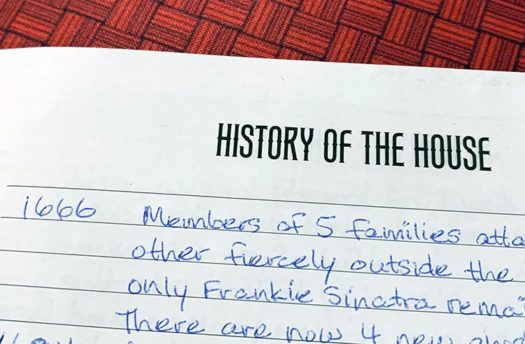 HISTORY OF THE HOUSE
1666 Members of 5 families atta
other fiercely outside the
only Frankie Sinatra rema
There are now 4 new